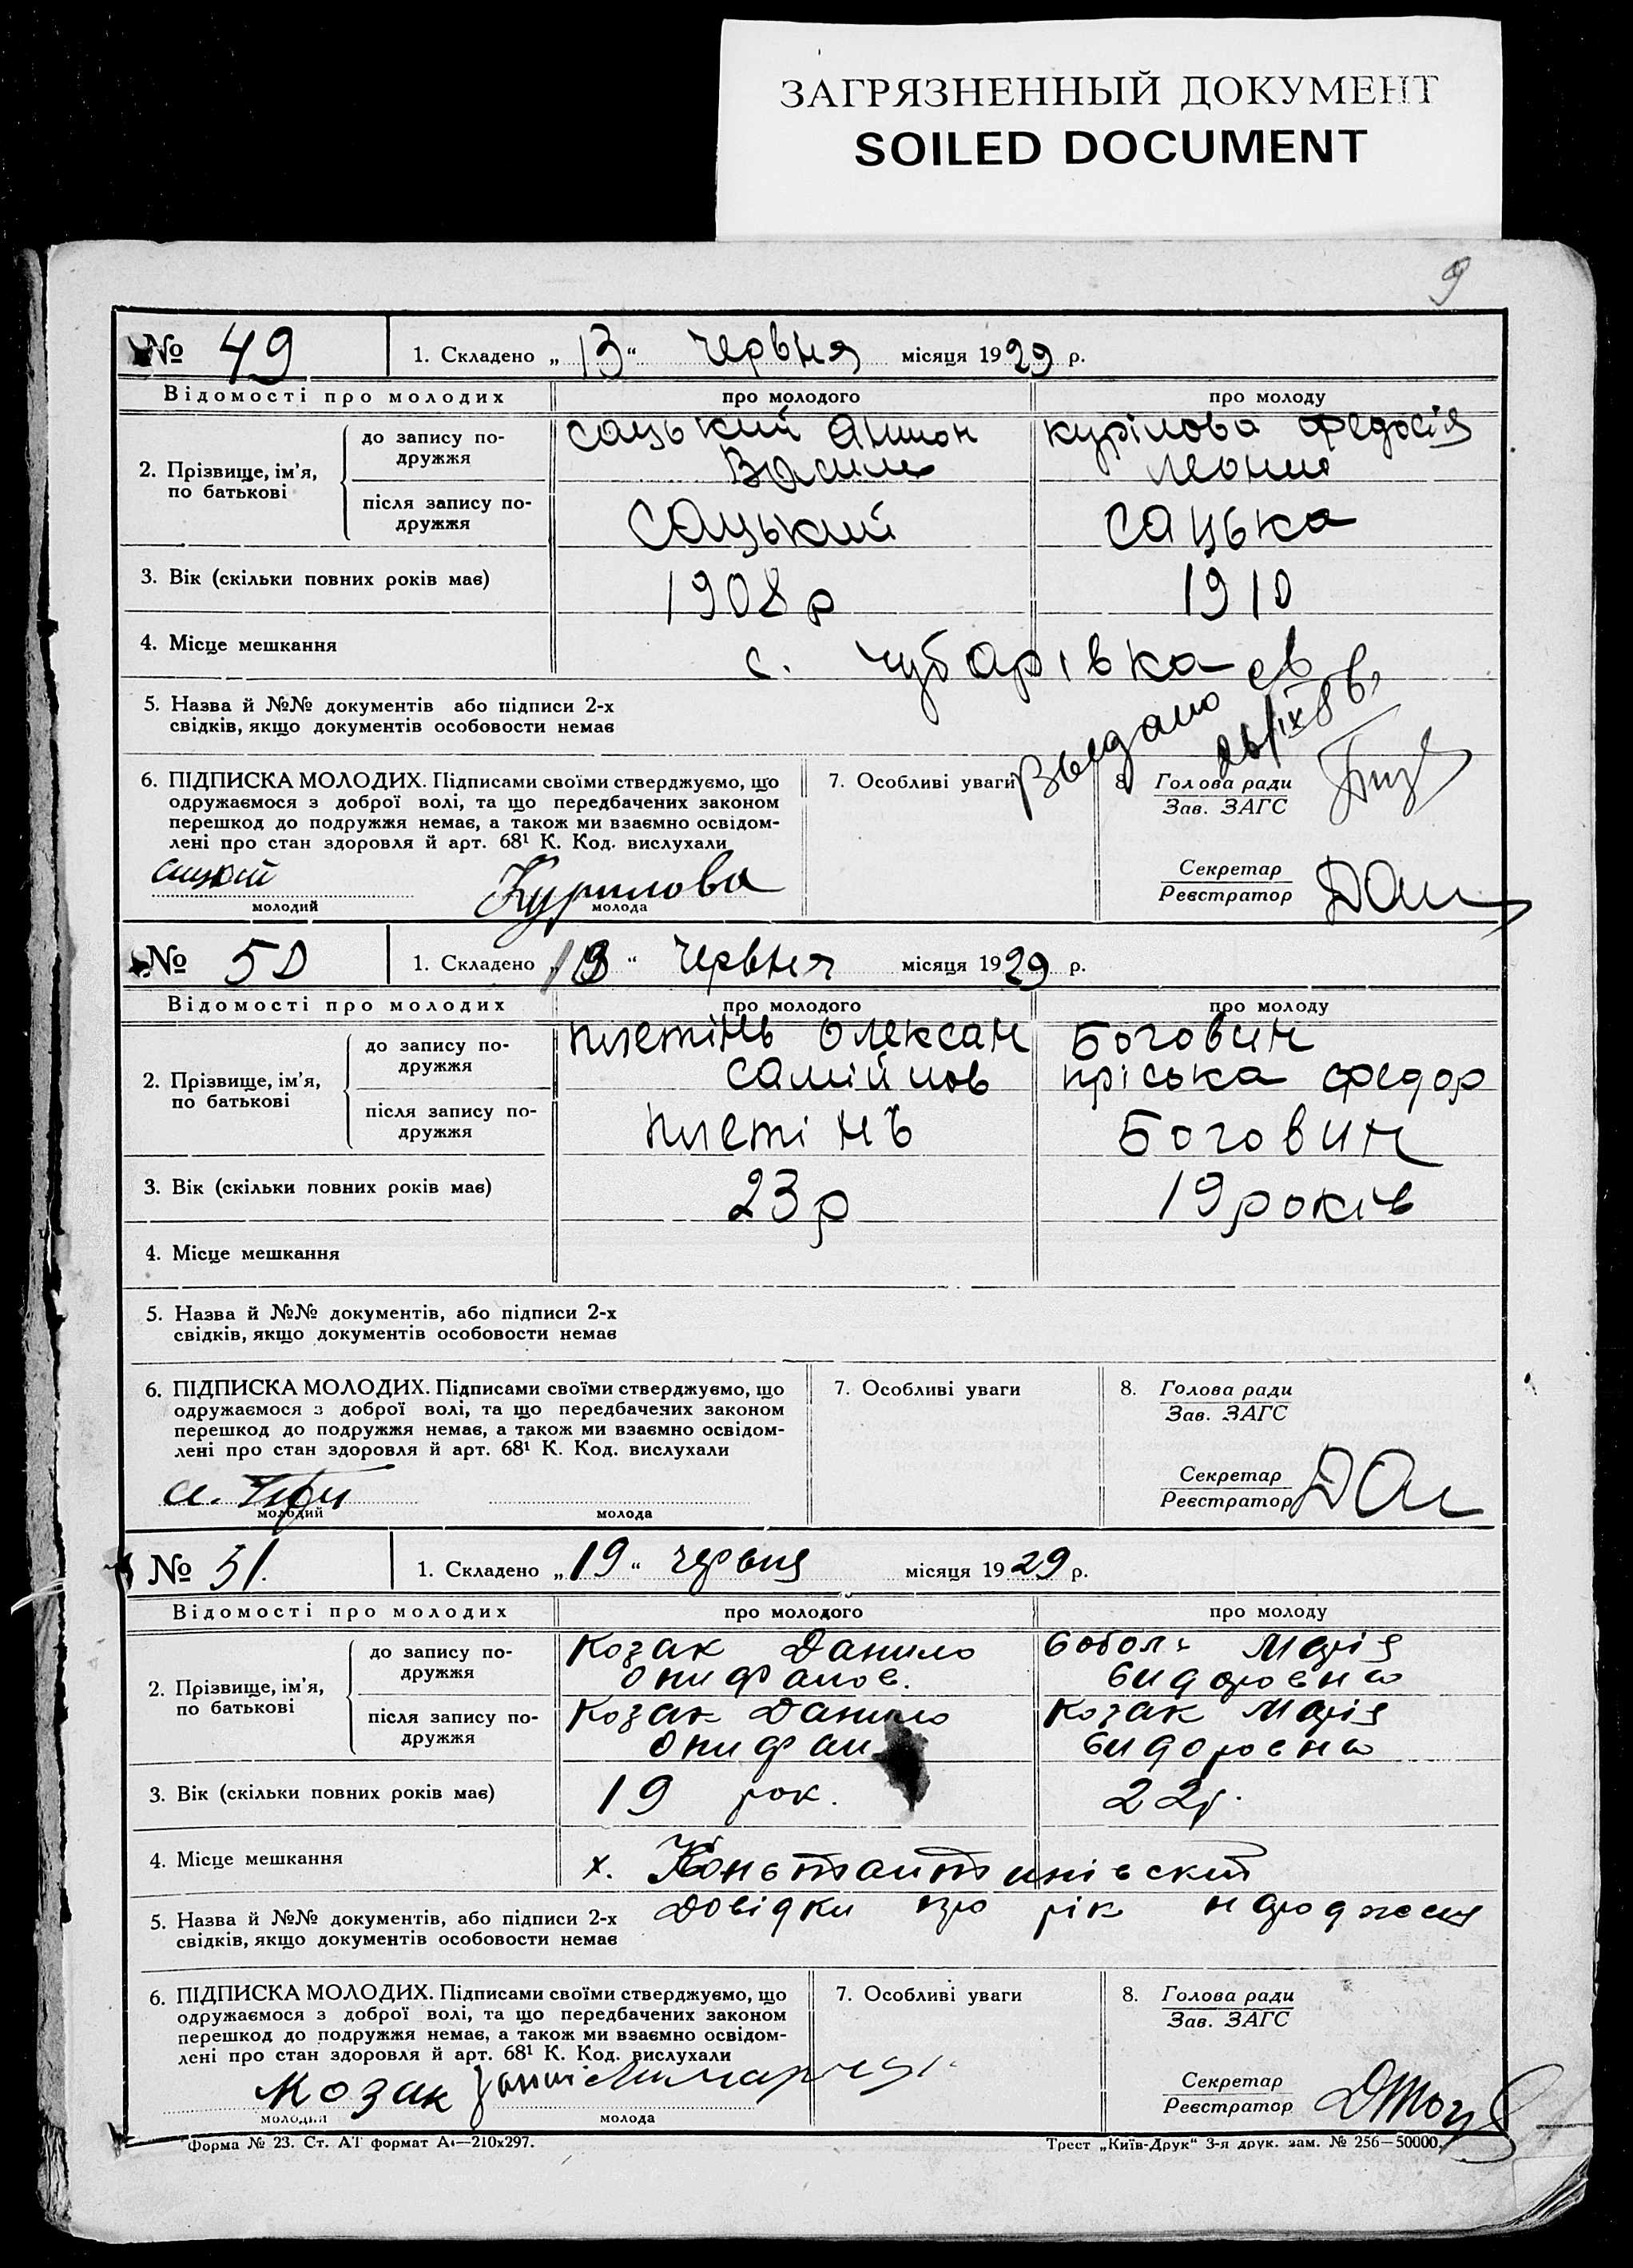 ЗАГРЯЗНЕННЫЙ ДОКУМЕНТ
SOILED DOCUMENT
9
№ 49 1. Складено „13“ червня місяця 1929 р.
Відомості про молодих про молодого про молоду
2. Прізвище, ім'я, по батькові
до запису подружжя
Сацький Антон Васил
Курілова Федосія Леонт
після запису подружжя
Сацький Сацька
3. Вік (скільки повних років має) 1908 р 1910
4. Місце мешкання с. Чубарівка
5. Назва й №№ документів або підписи 2-х
свідків, якщо документів особовости немає
Выдано
6. ПІДПИСКА МОЛОДИХ. Підписами своїми стверджуємо, що
одружаємося з доброї волі, та що передбачених законом
перешкод до подружжя немає, а також ми взаємно освідом-
лені про стан здоровля й арт. 68¹ К. Код. вислухали
7. Особливі уваги
8. Голова ради
Зав. ЗАГС
Секретар
Реєстратор
Курилова
молодий молода
№ 50 1. Складено „13“ червня місяця 1929 р.
Відомості про молодих про молодого про молоду
2. Прізвище, ім'я, по батькові
до запису подружжя
Плетінь Олексан Самійлов
Боговин Пріська Федор
після запису подружжя
Плетінь Боговин
3. Вік (скільки повних років має) 23 р 19 років
4. Місце мешкання
5. Назва й №№ документів, або підписи 2-х
свідків, якщо документів особовости немає
6. ПІДПИСКА МОЛОДИХ. Підписами своїми стверджуємо, що
одружаємося з доброї волі, та що передбачених законом
перешкод до подружжя немає, а також ми взаємно освідом-
лені про стан здоровля й арт. 68¹ К. Код. вислухали
7. Особливі уваги
8. Голова ради
Зав. ЗАГС
Секретар
Реєстратор
молодий молода
№ 51. 1. Складено „19“ червня місяця 1929 р.
Відомості про молодих про молодого про молоду
2. Прізвище, ім'я, по батькові
до запису подружжя
Козак Данило Онифанов.
Соболь Марія Сидоровна
після запису подружжя
Козак Данило Онифан
Козак Марія Сидоровна
3. Вік (скільки повних років має) 19 рок. 22 р.
4. Місце мешкання х. Константинівский
5. Назва й №№ документів, або підписи 2-х
свідків, якщо документів особовости немає
Довідки про рік народження
6. ПІДПИСКА МОЛОДИХ. Підписами своїми стверджуємо, що
одружаємося з доброї волі, та що передбачених законом
перешкод до подружжя немає, а також ми взаємно освідом-
лені про стан здоровля й арт. 68¹ К. Код. вислухали
7. Особливі уваги
8. Голова ради
Зав. ЗАГС
Секретар
Реєстратор
Козак
молодий молода
Форма № 23. Ст. АТ формат А₄—210х297.
Трест „Київ-Друк“ 3-я друк. зам. № 256—50000.